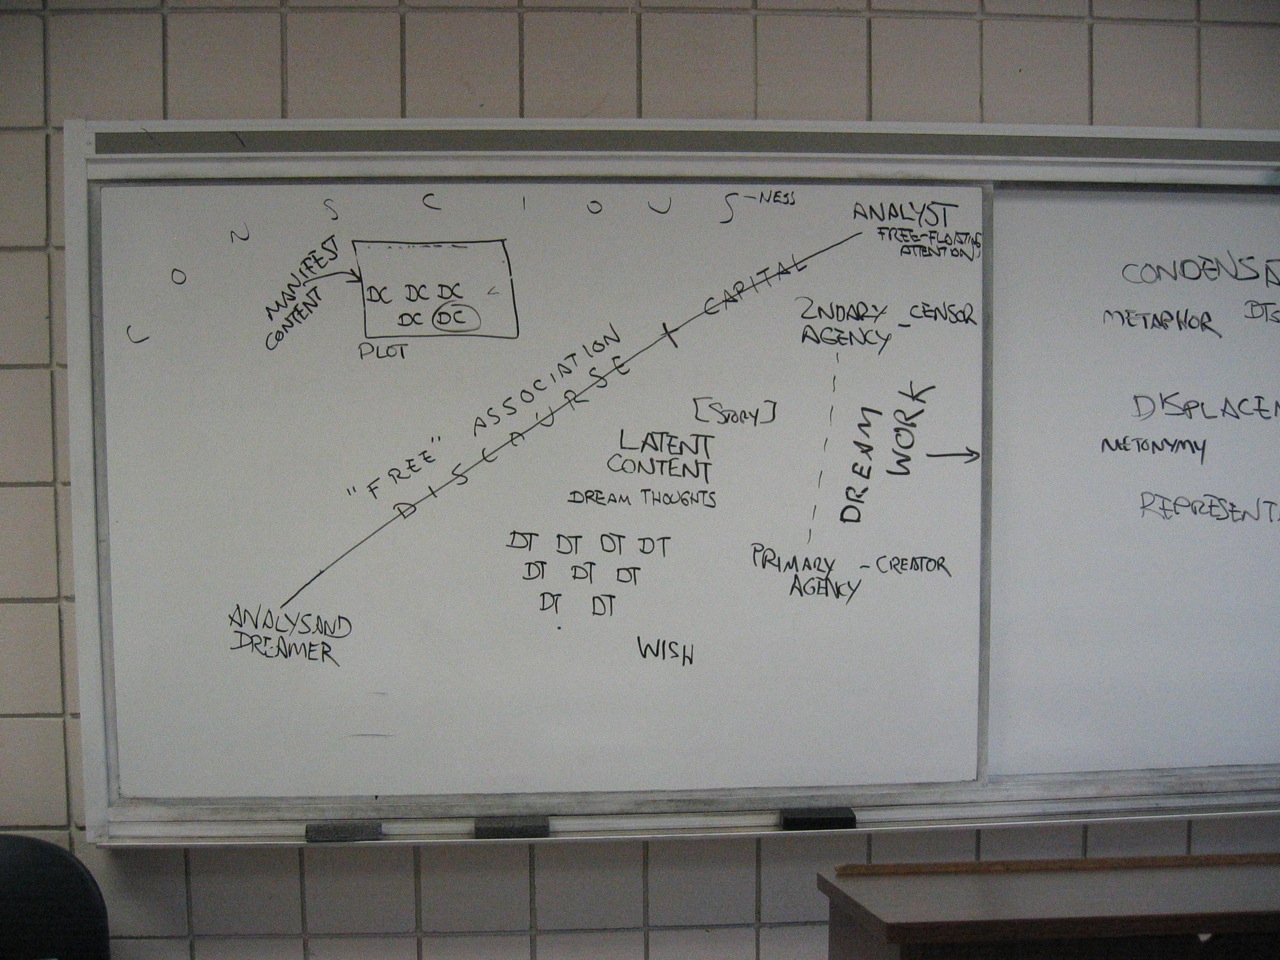 CONSCIOUS-NESS
ANALYST
FREE-FLOATING
ATTENTION
MANIFEST
CONTENT
DC DC DC
DC DC
PLOT
"FREE" ASSOCIATION
DISCOURSE + CAPITAL
2NDARY - CENSOR
AGENCY
[STORY]
LATENT
CONTENT
DREAM THOUGHTS
DREAM
WORK
DT DT DT DT
DT DT DT
DT DT
PRIMARY - CREATOR
AGENCY
WISH
ANALYSAND
DREAMER
CONDENSA
METAPHOR DTS
DISPLACEM
METONYMY
REPRESENTA